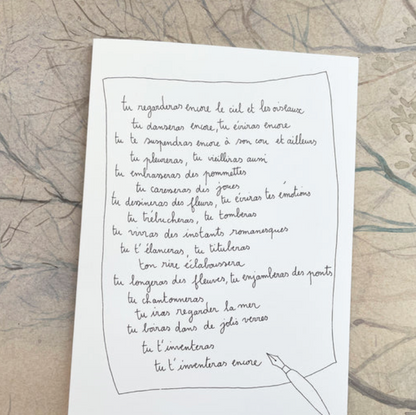 tu regarderas encore le ciel et les oiseaux
tu danseras encore, tu écriras encore
tu te suspendras encore à son cou et ailleurs
tu pleureras, tu vieilliras aussi
tu embrasseras des pommettes
tu caresseras des joues
tu dessineras des fleurs, tu écriras tes émotions
tu trébucheras, tu tomberas
tu vivras des instants romanesques
tu t'élanceras, tu tituberas
ton rire éclaboussera
tu longeras des fleuves, tu enjamberas des ponts
tu chantonneras,
tu iras regarder la mer
tu boiras dans de jolis verres
tu t'inventeras
tu t'inventeras encore